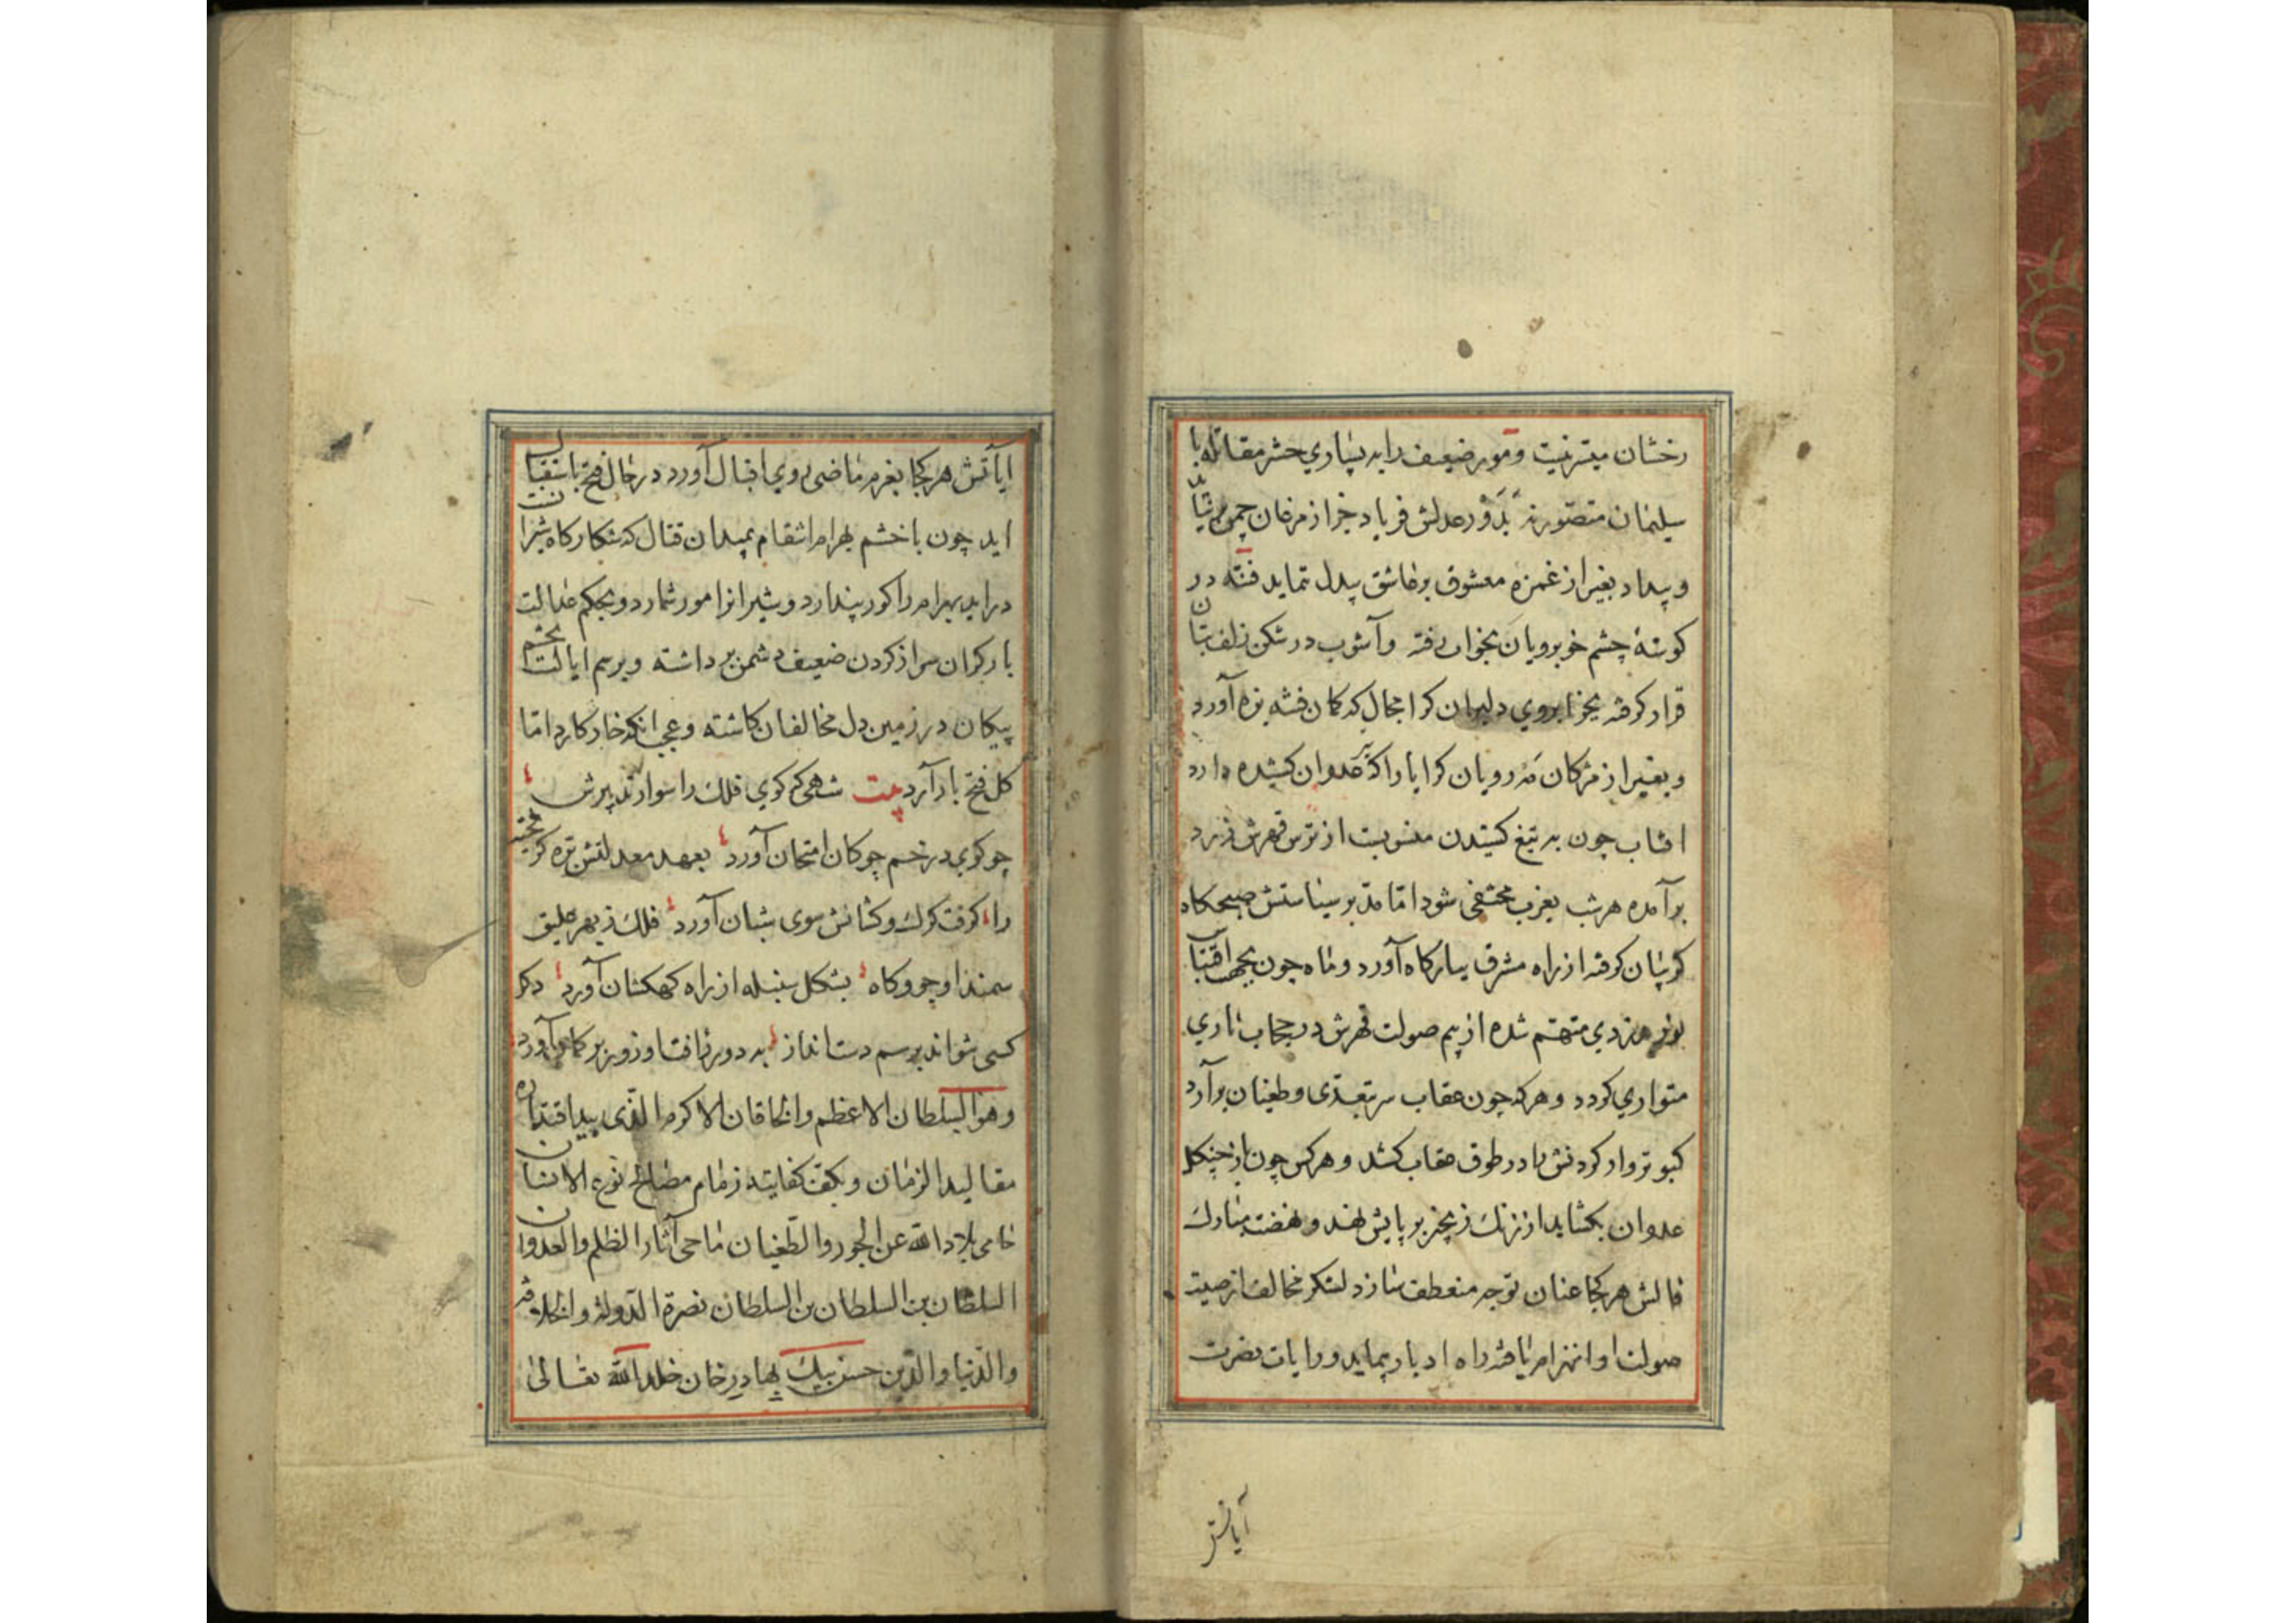 رخشان میسر نیست و مور ضعیف را به بسیاری حشر مقاتله با
سلیمان متصور نه بدور عدلش فریاد جز از مرغان چمن بر نیاید
و بیداد بغیر از غمزه معشوق بر عاشق بیدل ننماید فتنه در
کوشهٔ چشم خوبرویان بخواب رفته و آشوب در شکن زلف بتان
قرار کرفته بجز ابروی دلبران کرا مجال که کمان فتنه بزه آورد
و بغیر از مژکان مه رویان کرا یارا که تیر عدوان کشیده دارد
افتاب چون به تیغ کشیدن منسوبست از ترس قهرش زرد
برآمده هر شب بغرب مختفی شود اما مدبر سیاستش صبحکاه
کریبان کرفته از راه مشرق ببارکاه آورد و ماه چون بجهت اقتباس
نور بدزدی متهم شده از بیم صولت قهرش در حجاب تاری
متواری کردد و هر که چون عقاب سر بتعدی و طغیان برآرد
کبوتر وار کردنش را در طوق عقاب کشد و هر کس چون باز چنکل
عدوان بکشاید از زنک زنجیر بر پایش نهد و نهضت مبارک
فالش هر کجا عنان توجه منعطف سازد لشکر مخالف از صیت
صولت او انهزام یافته راه ادبار پیماید و رایات نصرت
آیاتش
ایاتش هر کجا بعزم ماضی روی اقبال آورد در حال فتح باستقبال
اید چون با خشم بهرام انتقام بمیدان قتال که شکارکاه شیرانست
دراید بهرام را کور پندارد و شیرانرا مور شمارد و بحکم عدالت
بار کران سر از کردن ضعیف دشمن برداشته و برسم ایالت تخم
پیکان در زمین دل مخالفان کاشته و عجب انکه خار کارد اما
کل فتح بار آرد بیت شهی که کوی فلک را سوار تدبیرش
چو کوی در خم چوکان امتحان آورد بعهد معدلتش بره کریخته
را کرفت کرک و کشانش سوی شبان آورد فلک ز بهر علیق
سمند او جو و کاه بشکل سنبله از راه کهکشان آورد دکر
کسی نتواند برسم دست انداز به دور رافت او زور بر کمان آورد
وهو السلطان الاعظم والخاقان الاکرم الذی بید اقتداره
مقالید الزمان وبکف کفایته زمام مصالح نوع الانسان
حامی بلاد الله عن الجور والطغیان ماحی آثار الظلم والعدوان
السلطان بن السلطان بن السلطان نصرة الدولة والخلافة
والدنیا والدین حسن بیک بهادر خان خلد الله تعالی